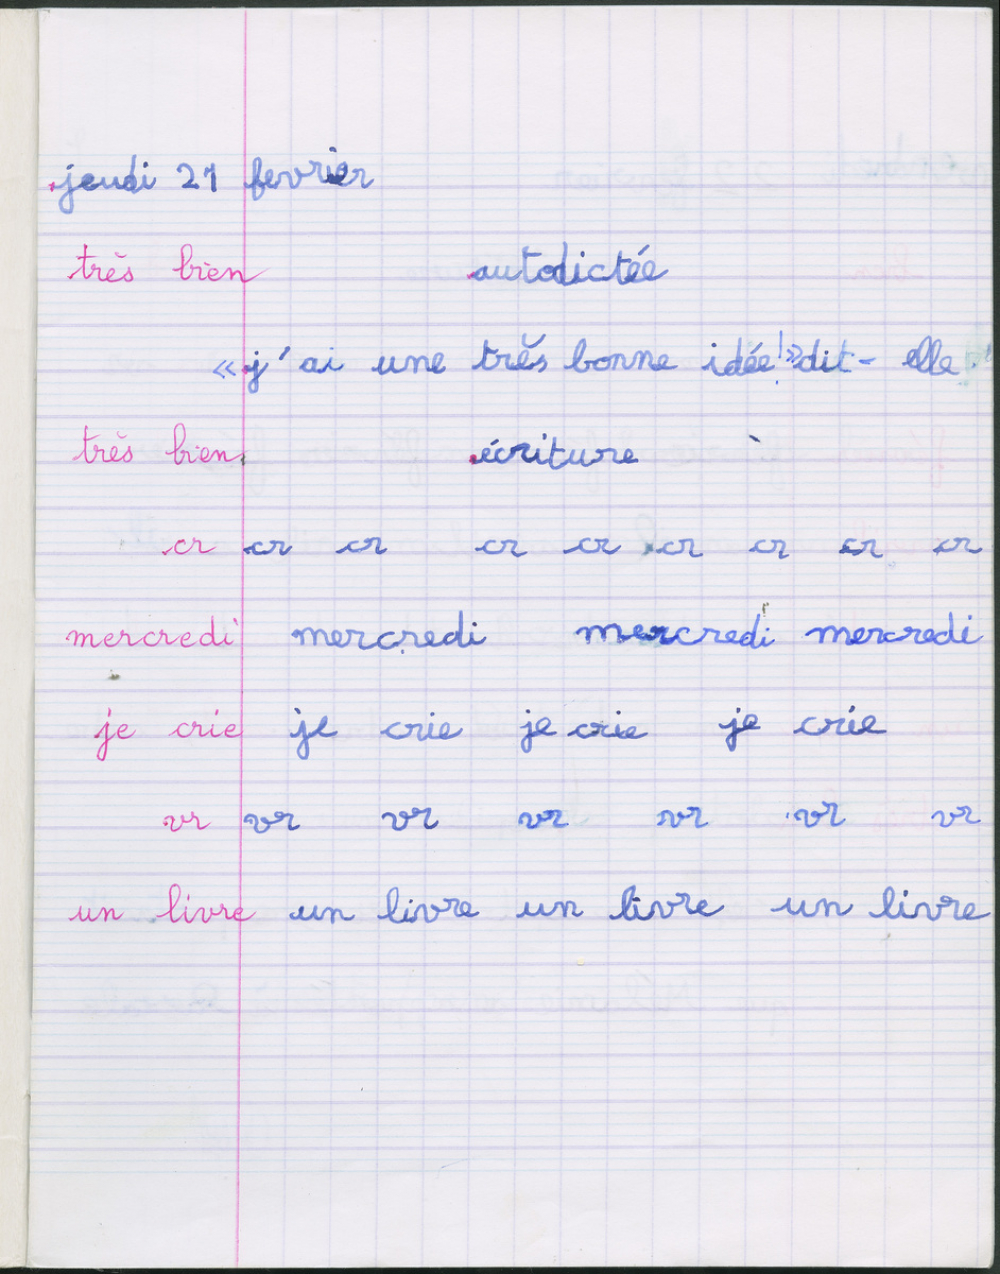 jeudi 21 fevrier
très bien autodictée
« j'ai une très bonne idée! » dit-elle.
très bien écriture
cr cr cr cr cr cr cr cr cr
mercredi mercredi mercredi mercredi
je crie je crie je crie je crie
vr vr vr vr vr vr vr
un livre un livre un livre un livre